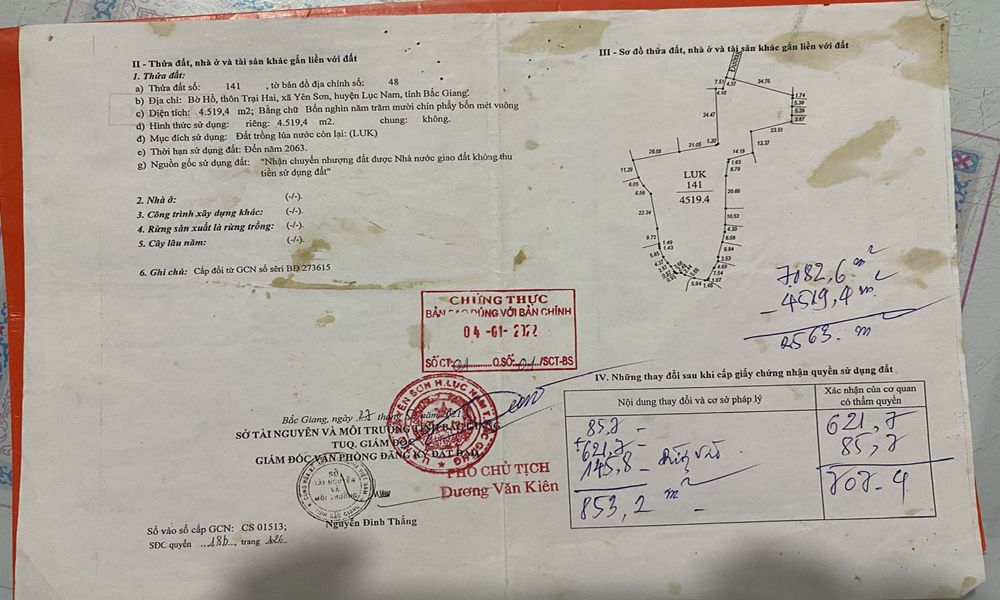 II - Thửa đất, nhà ở và tài sản khác gắn liền với đất
1. Thửa đất:
a) Thửa đất số: 141 , tờ bản đồ địa chính số: 48
b) Địa chỉ: Bờ Hồ, thôn Trại Hai, xã Yên Sơn, huyện Lục Nam, tỉnh Bắc Giang.
c) Diện tích: 4.519,4 m2; Bằng chữ Bốn nghìn năm trăm mười chín phẩy bốn mét vuông
d) Hình thức sử dụng: riêng: 4.519,4 m2. chung: không.
đ) Mục đích sử dụng: Đất trồng lúa nước còn lại: (LUK)
e) Thời hạn sử dụng đất: Đến năm 2063.
g) Nguồn gốc sử dụng đất: "Nhận chuyển nhượng đất được Nhà nước giao đất không thu
tiền sử dụng đất"
2. Nhà ở: (-/-).
3. Công trình xây dựng khác: (-/-).
4. Rừng sản xuất là rừng trồng: (-/-).
5. Cây lâu năm: (-/-).
6. Ghi chú: Cấp đổi từ GCN số sêri BĐ 273615
CHỨNG THỰC
BẢN SAO ĐÚNG VỚI BẢN CHÍNH
04 -01- 2022
SỐ CT: 01 Q.SỐ: 01 /SCT-BS
Bắc Giang, ngày 27 tháng năm 2021
SỞ TÀI NGUYÊN VÀ MÔI TRƯỜNG TỈNH BẮC GIANG
TUQ. GIÁM ĐỐC
GIÁM ĐỐC VĂN PHÒNG ĐĂNG KÝ ĐẤT ĐAI
SỞ
TÀI NGUYÊN
VÀ
MÔI TRƯỜNG
PHÓ CHỦ TỊCH
Dương Văn Kiên
Nguyễn Đình Thắng
Số vào sổ cấp GCN: CS 01513;
SĐC quyển 18b, trang 126
III - Sơ đồ thửa đất, nhà ở và tài sản khác gắn liền với đất
Đường
7.51
4.10
4.37
34.75
1.74
5.38
5.39
3.87
34.47
23.51
12.37
26.58
21.05
1.30
14.19
1.83
8.79
11.29
6.05
6.56
LUK
141
4519.4
20.66
22.34
10.53
4.30
6.58
9.72
1.49
1.43
9.84
5.85
2.53
4.69
7.54
1.07
5.94
1.46
7082,6 m2
- 4519,4 m2
2563 m
IV. Những thay đổi sau khi cấp giấy chứng nhận quyền sử dụng đất
Nội dung thay đổi và cơ sở pháp lý
Xác nhận của cơ quan
có thẩm quyền
85,7 -
+ 621,7 -
145,8 -
853,2 m2 -
621,7
85,7
707-4